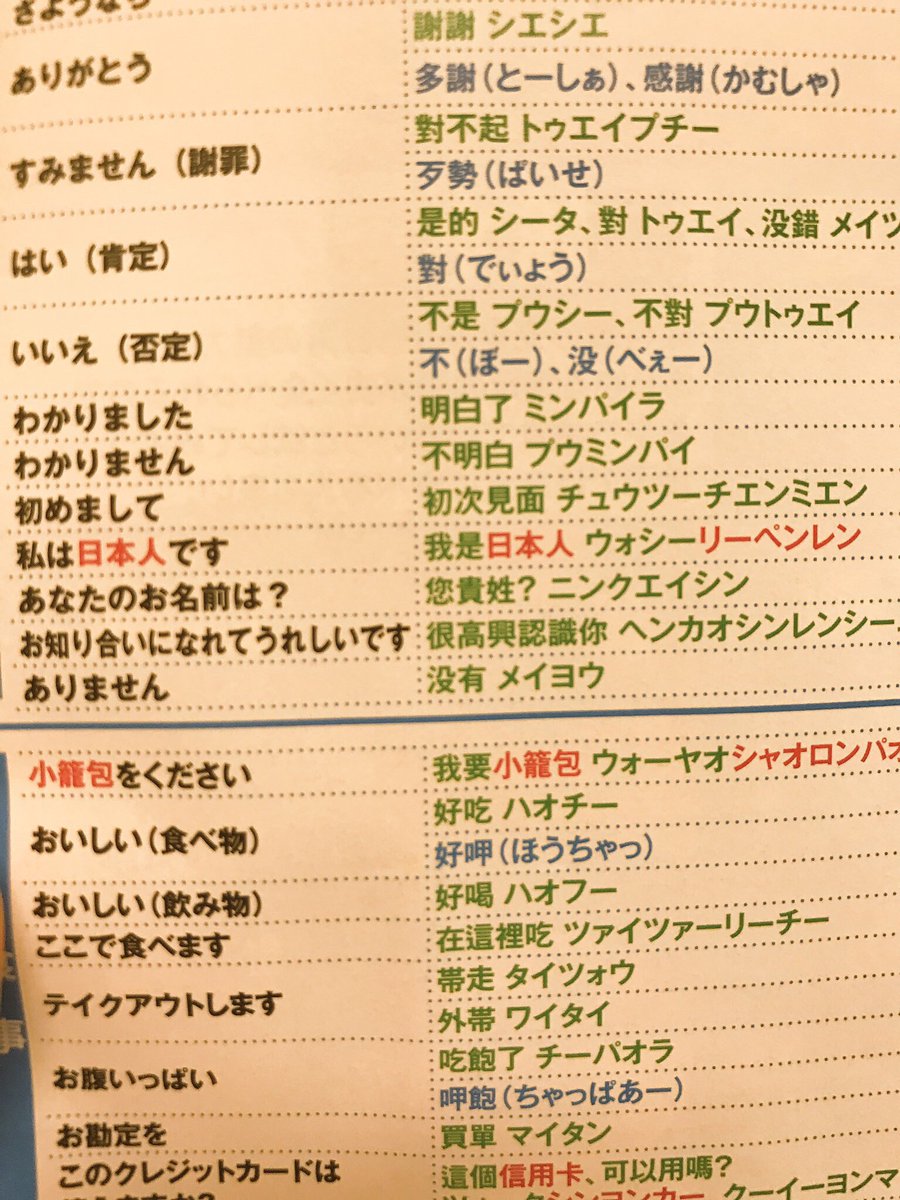 さようなら
謝謝 シエシエ
ありがとう
多謝(とーしぁ)、感謝(かむしゃ)
對不起 トゥエイプチー
すみません(謝罪)
歹勢(ぱいせ)
是的 シータ、對 トゥエイ、没錯 メイツ
はい(肯定)
對(でぃよう)
不是 プウシー、不對 プウトゥエイ
いいえ(否定)
不(ぼー)、没(べぇー)
わかりました
明白了 ミンパイラ
わかりません
不明白 プウミンパイ
初めまして
初次見面 チュウツーチエンミエン
私は日本人です
我是日本人 ウォシーリーペンレン
あなたのお名前は?
您貴姓? ニンクエイシン
お知り合いになれてうれしいです
很高興認識你 ヘンカオシンレンシー
ありません
没有 メイヨウ
小籠包をください
我要小籠包 ウォーヤオシャオロンパオ
好吃 ハオチー
おいしい(食べ物)
好呷(ほうちゃっ)
おいしい(飲み物)
好喝 ハオフー
ここで食べます
在這裡吃 ツァイツァーリーチー
帯走 タイツォウ
テイクアウトします
外帯 ワイタイ
吃飽了 チーパオラ
お腹いっぱい
呷飽(ちゃっぱあー)
お勘定を
買單 マイタン
このクレジットカードは
這個信用卡、可以用嗎?
シンヨンカー、クーイーヨンマ
事